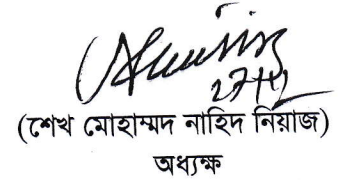 (শেখ মোহাম্মদ নাহিদ নিয়াজ)
অধ্যক্ষ